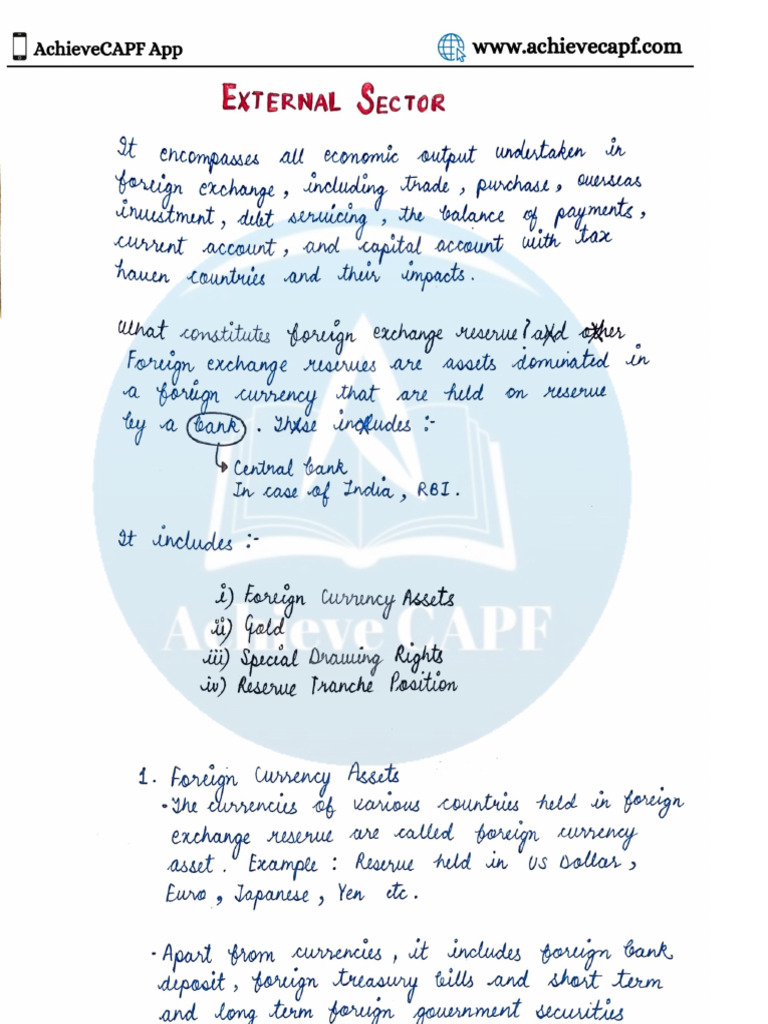 AchieveCAPF App
www.achievecapf.com
EXTERNAL SECTOR
It encompasses all economic output undertaken in
foreign exchange, including trade, purchase, overseas
investment, debt servicing, the balance of payments,
current account, and capital account with tax
haven countries and their impacts.
What constitutes foreign exchange reserve? and other
Foreign exchange reserves are assets dominated in
a foreign currency that are held on reserve
by a bank. These includes :-
Central bank
In case of India, RBI.
It includes :-
i) Foreign Currency Assets
ii) Gold
Achieve CAPF
iii) Special Drawing Rights
iv) Reserve Tranche Position
1. Foreign Currency Assets
•The currencies of various countries held in foreign
exchange reserve are called foreign currency
asset. Example : Reserve held in US Dollar,
Euro, Japanese, Yen etc.
•Apart from currencies, it includes foreign bank
deposit, foreign treasury bills and short term
and long term foreign government securities